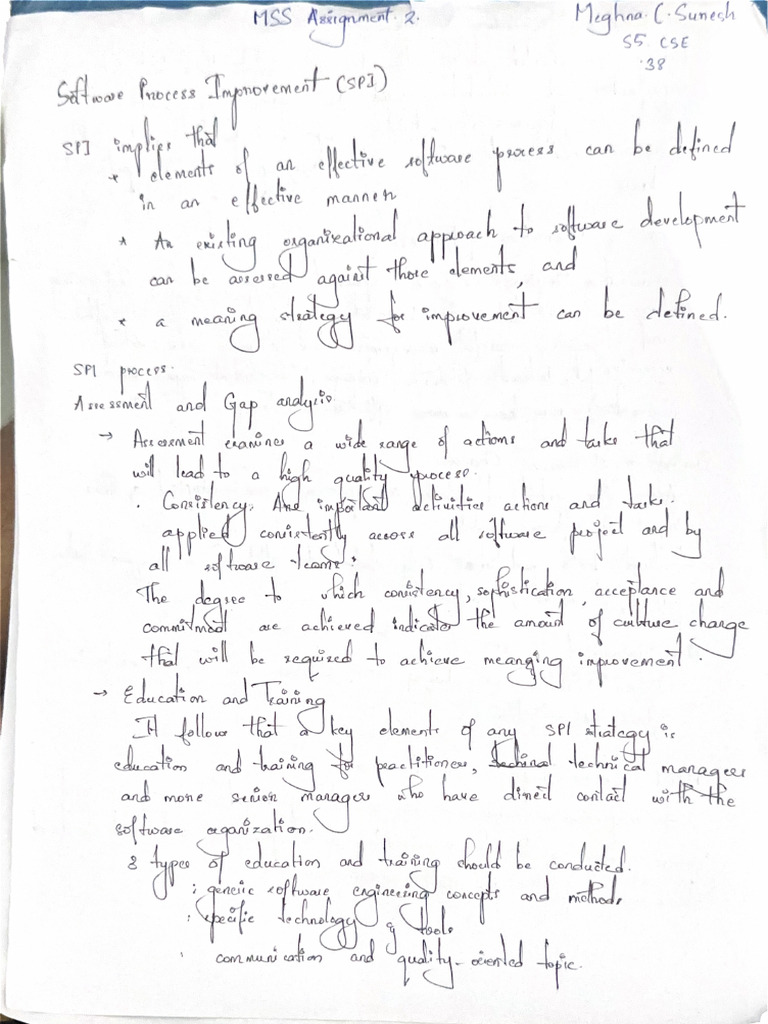 MSS Assignment 2.
Meghna. C. Suresh
S5 CSE
38
Software Process Improvement (SPI)
SPI implies that
* elements of an effective software process can be defined
in an effective manner
* An existing organizational approach to software development
can be assessed against those elements, and
* a meaning strategy for improvement can be defined.
SPI process:
Assessment and Gap analysis.
→ Assessment examines a wide range of actions and tasks that
will lead to a high quality process.
. Consistency. Are important activities actions and tasks.
applied consistently across all software project and by
all software teams?
The degree to which consistency, sophistication, acceptance and
commitment are achieved indicates the amount of culture change
that will be required to achieve meanging improvement.
→ Education and Training
It follow that a key elements of any SPI strategy is
education and training for practitioner, technical managers
and more senior manager who have direct contact with the
software organization.
3 types of education and training should be conducted.
: generic software engineering concepts and methods
: specific technology & tools
: communication and quality-oriented topic.